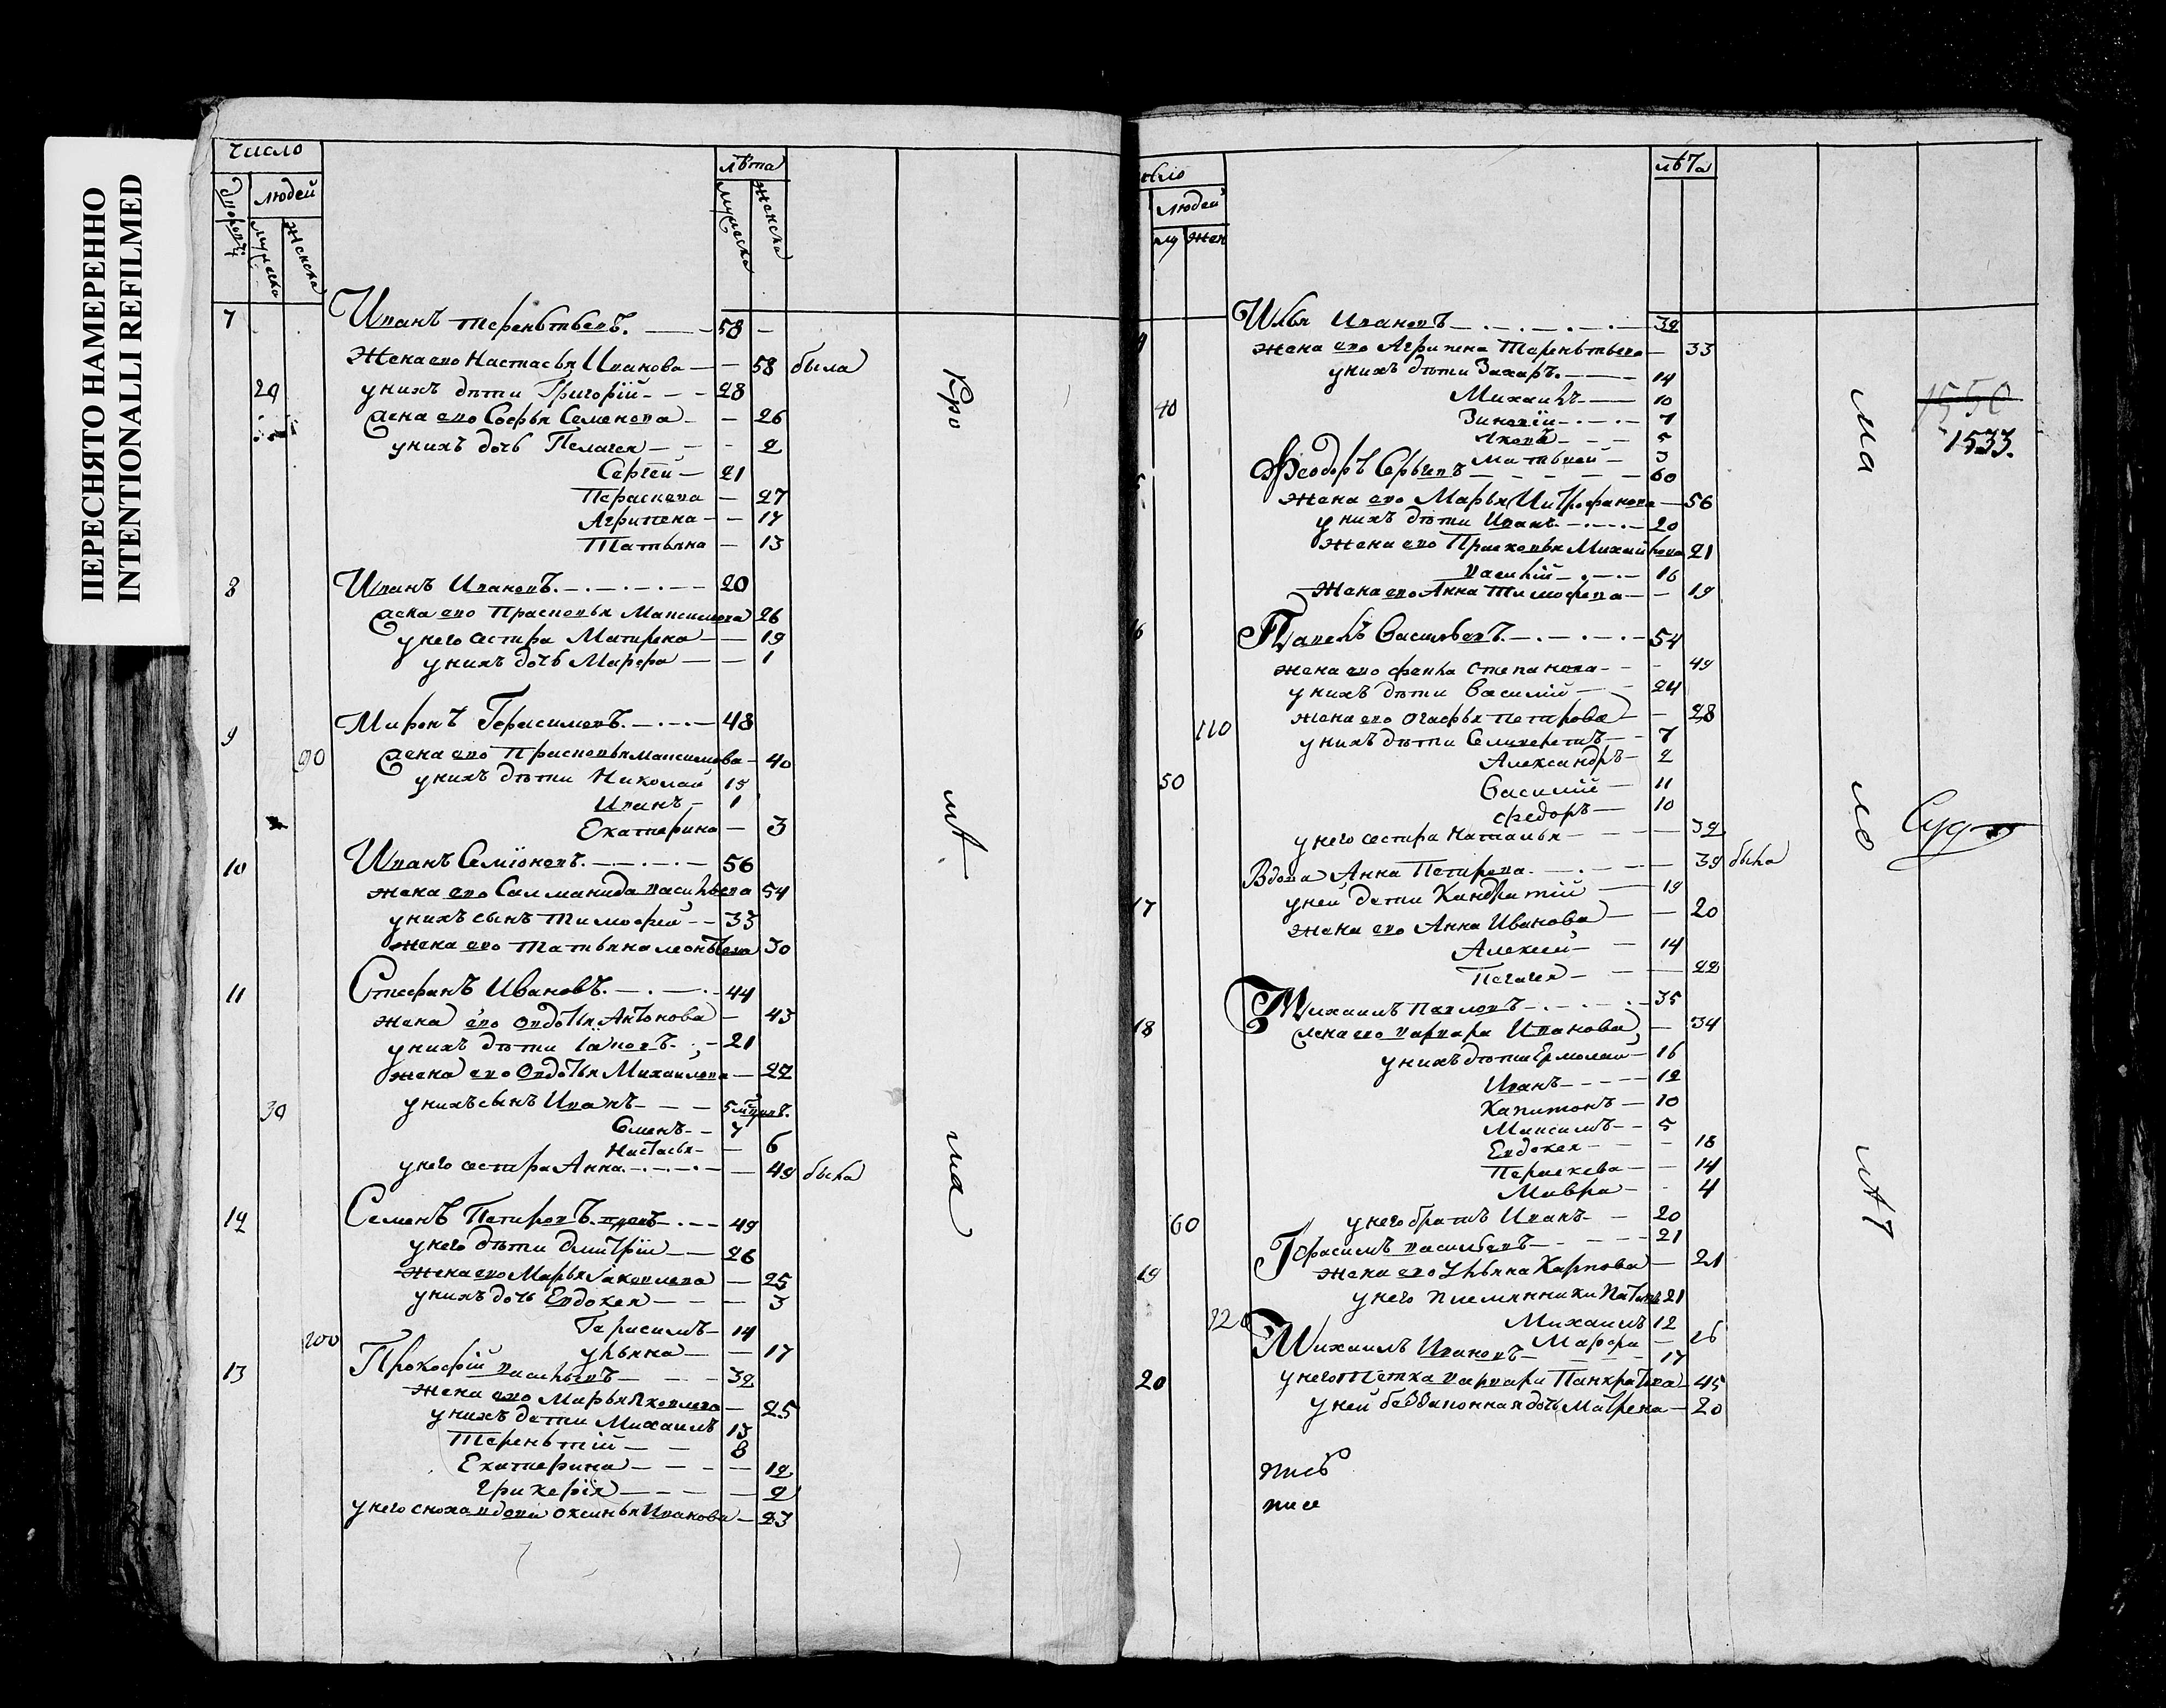 ПЕРЕСНЯТО НАМЕРЕННО
INTENTIONALLI REFILMED
число
лѣта
людей
мужеска
женска
мужеска
женска
7
Иванъ терентьевъ. 58
Жена ево Настасья Иванова 58 была
29
у нихъ дѣти Григорїй 28
жена ево Софья Семенова 26
у нихъ дочь Пелагея 2
Сергей 21
Параскева 27
Агрипена 17
Татьяна 13
8
Иванъ Ивановъ. 20
жена ево Прасковья Максимова 26
у него сестра Матрена 19
у нихъ дочь Марфа 1
9
Миронъ Герасимовъ. 48
90
жена ево Прасковья максимова 40
у нихъ дѣти Николай 15
Иванъ 1
Екатерина 3
10
Иванъ Семїоновъ. 56
жена ево Саломанида васильева 54
у нихъ сынъ тимофей 33
жена ево татьяна леонтьева 30
11
Стефанъ Ивановъ. 44
жена ево овдотья Антонова 43
у нихъ дѣти 21
жена ево Овдотья Михаилова 22
30
у нихъ сынъ Иванъ 5
Семенъ 7
Настасья 6
у него сестра Анна. 49 была
12
Семенъ Петровъ. 49
у него дѣти дмитрїи 26
жена ево Марья Iаковлева 25
у нихъ дочь Евдокея 3
Герасимъ 14
100
ульяна 17
13
Прокофїй васильевъ 32
жена ево Марья Яковлева 25
у нихъ дети Михаилъ 13
Терентїй 8
Екатерина 12
Грикерїя 2
у него сноха вдова оксинья Иванова 23
Кро
мѣ
на
лѣта
людей
му жен
Илья Ивановъ 32
жена ево Агрипена Терентьева 33
у нихъ дѣти Захаръ. 14
Михаилъ 10
40
Зиновїй 7
Яковъ 5
Матвѣей 3
Феодоръ Сергѣевъ 60
жена ево Марья Митрофанова 56
у нихъ дѣти Иванъ 20
жена ево Прасковья Михайлова 21
василїй 16
жена ево Анна Тимофеева 19
6
Павелъ Васильевъ. 54
жена ево фекла степанова 49
у нихъ дѣти василїй 24
110
жена ево огафья петрова 28
у нихъ дѣти Селиверстъ 7
Александръ 2
50
Василїй 11
федоръ 10
у него сестра Наталья 32
Вдова Анна Петрова. 39 была
17
у ней дети Кандратїй 19
жена ево Анна Иванова 20
Алексей 14
Пелагея 22
18
Михаилъ Павловъ 35
жена ево варвара Иванова 34
у нихъ дѣти Ермолай 16
Иванъ 12
Капитонъ 10
Максимъ 5
Евдокея 18
Параскева 14
Мавра 4
60
у него братъ Иванъ 20
19
Герасимъ васильевъ 21
жена ево Ульяна Карпова 21
у него племянники 21
120
Михаилъ 12
Марфа 26
Михаилъ Ивановъ 17
20
у него тетка варвара Панкратова 45
у ней беззаконная дочь Матрена 20
писъ
писе
на
ло
мѣ
1550
1533.